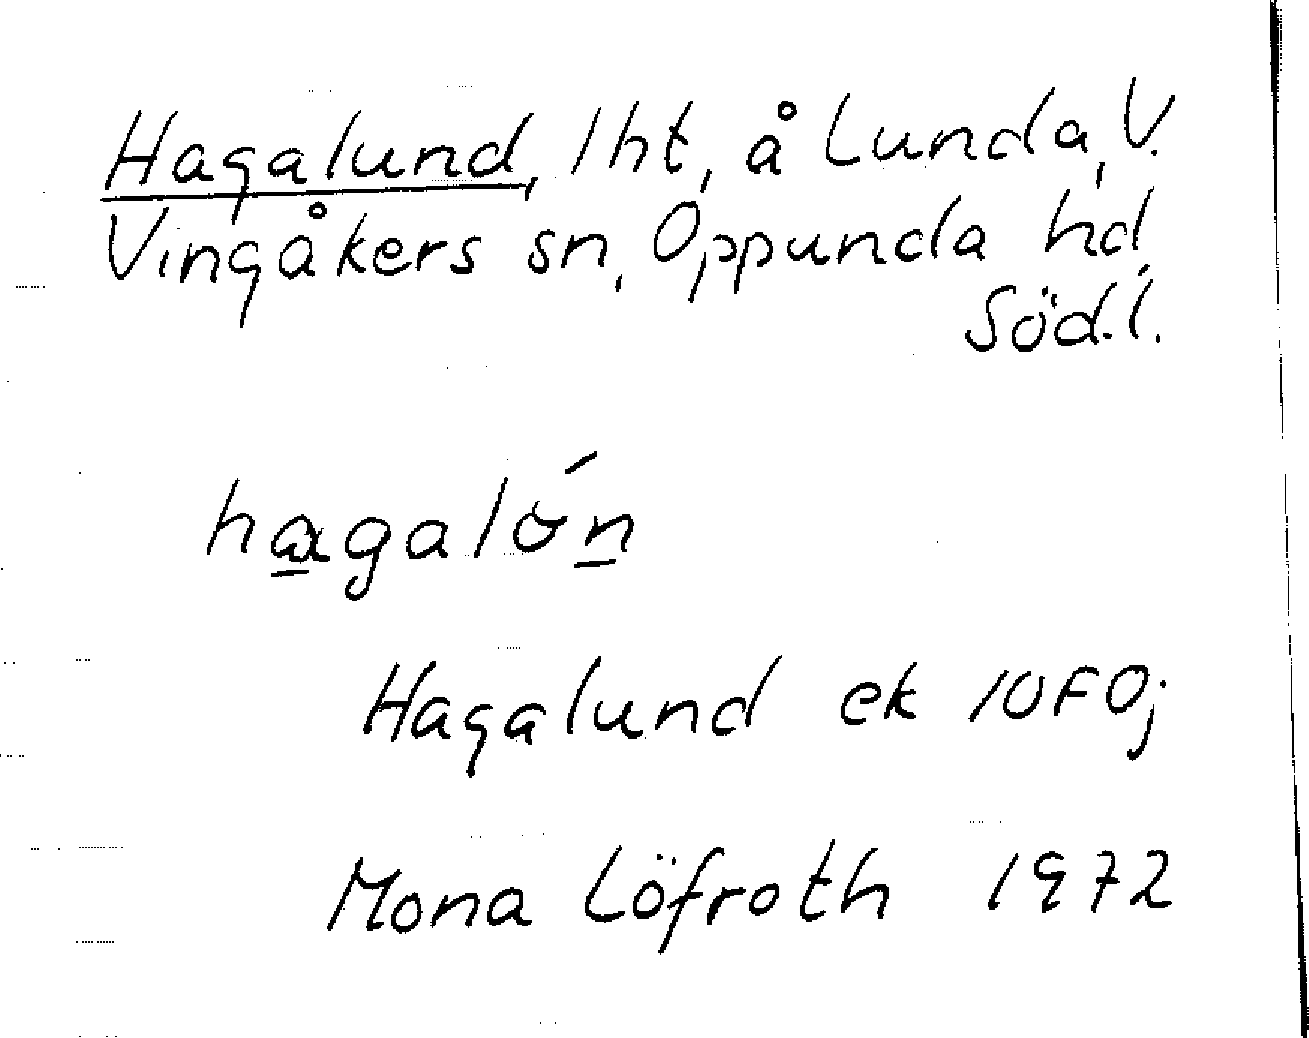 Hagalund, lht, å Lunda, V.
Vingåkers sn, Oppunda hd,
Söd.l.
hagalón
Hagalund ek 10F0j
Mona Löfroth 1972